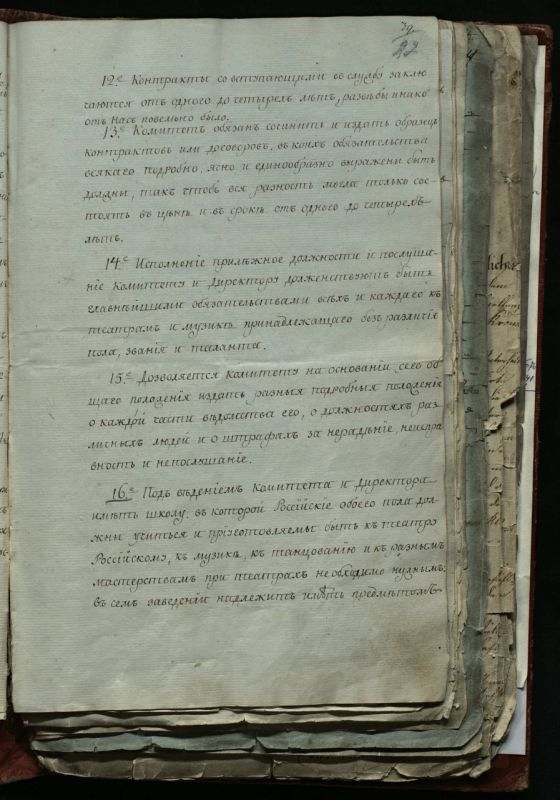 39
22
12.е Контракты со вступающими въ службу заклю
чаются отъ одного до четырехъ лѣтъ, развѣбы инако
отъ насъ повелѣно было.
13.е Комитетъ обязанъ сочинить и издать образецъ
контрактовъ или договоровъ, въ коихъ обязательства
всякаго подробно, ясно и единообразно выражены быть
должны, такъ чтобъ вся разность могла только сос-
тоять въ цѣнѣ и въ срокѣ отъ одного до четырехъ
лѣтъ.
14.е Исполненіе прилѣжное должности и послуша-
ніе Комитету и Директору долженствуютъ быть
главнѣйшими обязательствами всѣхъ и каждаго къ
театрамъ и музыкѣ принадлежащаго безъ различія
пола, званія и таланта.
15.е Дозволяется Комитету на основаніи сего об
щаго положенія издать разныя подробныя положенія
о каждой части вѣдомства его, о должностяхъ раз
личныхъ людей и о штрафахъ за нерадѣніе, неиспра
вность и непослушаніе.
16.е Подъ вѣденіемъ Комитета и Директора
имѣть школу, въ которой Россійскіе обоего пола дол-
жны учиться и пріуготовляемы быть къ театру
Россійскому, къ музыкѣ, къ танцованію и къ разнымъ
мастерствамъ при театрахъ необходимо нужнымъ.
въ семъ заведеніи надлежитъ имѣть предмѣтомъ